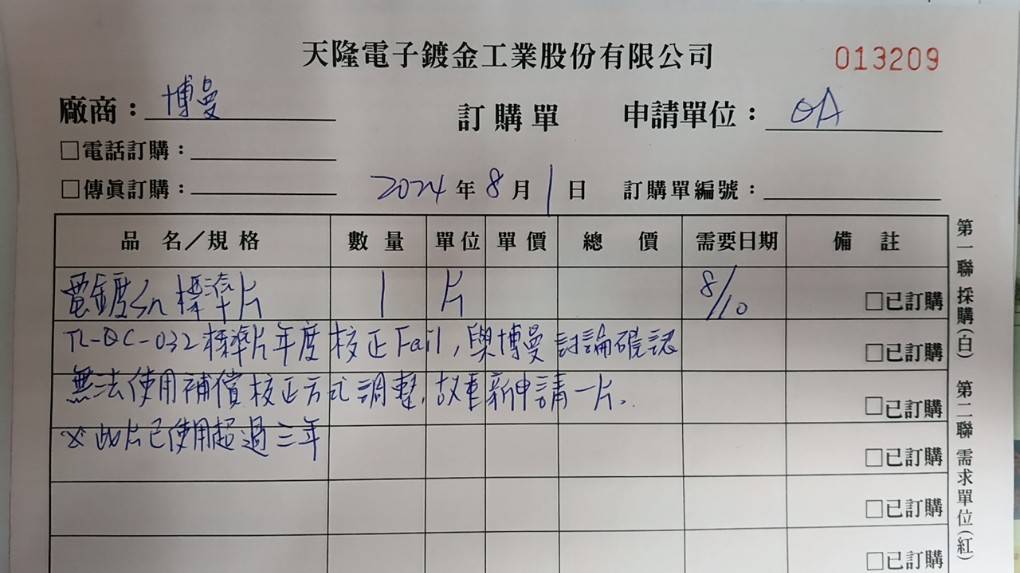 天隆電子鍍金工業股份有限公司 013209
廠商：博曼 訂購單 申請單位：QA
□電話訂購：
□傳眞訂購： 2024年8月1日 訂購單編號：
品名/規格 數量 單位 單價 總價 需要日期 備註
電鍍Sn標準片 1 片 8/10 □已訂購
TL-QC-032標準片年度校正Fail，與博曼討論確認 □已訂購
無法使用補償校正方式調整，故重新申請一片。 □已訂購
※此片已使用超過三年 □已訂購
□已訂購
□已訂購
第一聯 採購(白) 第二聯 需求單位(紅)